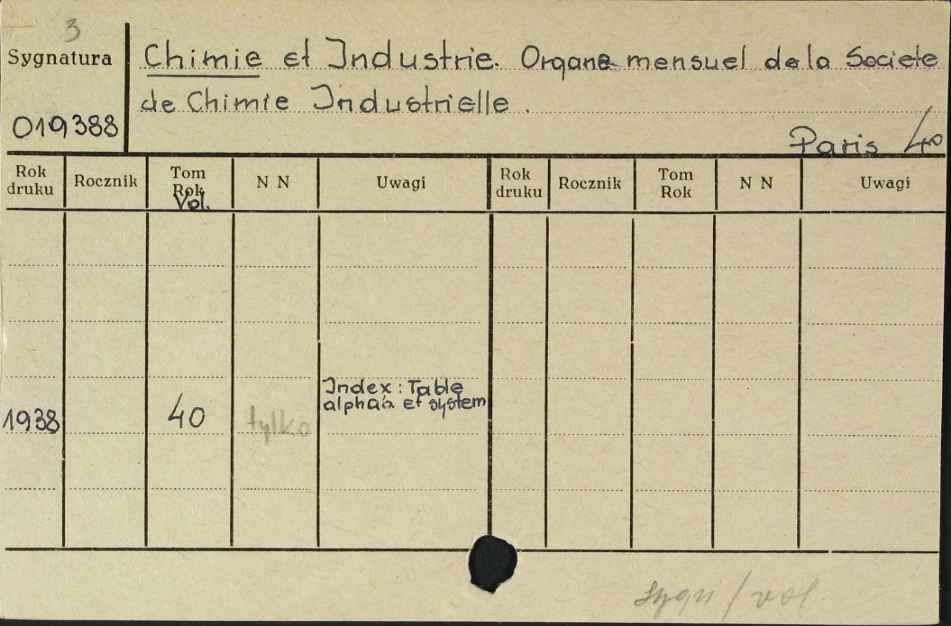 3
Sygnatura
Chimie et Industrie. Organe mensuel de la Societe
de Chimie Industrielle.
019388
Paris 40
Rok druku Rocznik Tom Rok Vol. N N Uwagi Rok druku Rocznik Tom Rok N N Uwagi
Index: Table
1938 40 tylko alphaa et system
sygn / vol